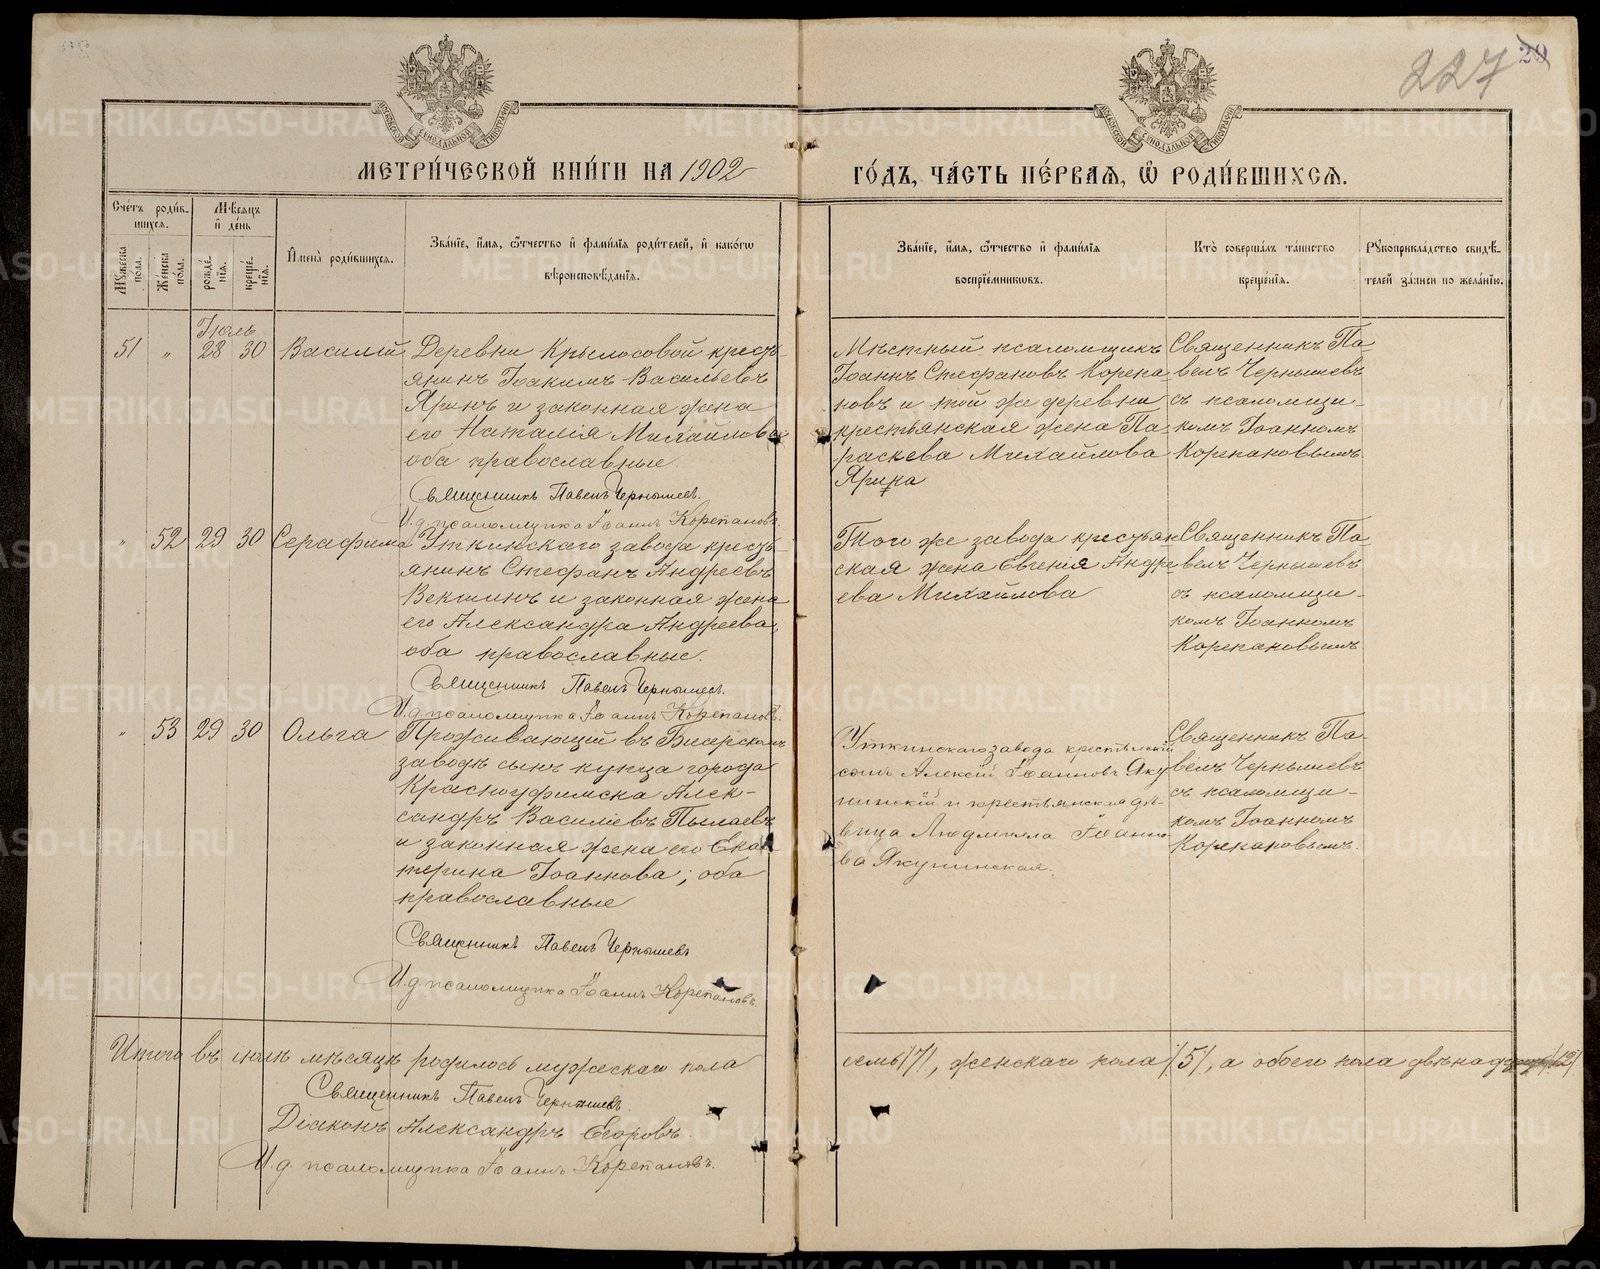 227
METRIKI.GASO-URAL.RU
МЕТРИ́ЧЕСКОЙ КНИ́ГИ НА 1902
ГО́ДЪ, ЧА́СТЬ ПЕ́РВАЯ, Ѽ РОДИ́ВШИХСЯ.
Сче́тъ роди́в-
шихся.
Мѣсяцъ
и де́нь
Мꙋжеска по́ла.
Же́нска по́ла.
рожде́-
нїя.
креще́-
нїя.
Имена̀ роди́вшихся.
Зва́нїе, и́мя, ѻтчество и фами́лїя роди́телей, и како́гѡ
вѣроисповѣ́данїя.
Зва́нїе, и́мя, ѻтчество и фами́лїя
воспрїе́мникѡвъ.
Кто̀ соверша́лъ та́инство
креще́нїя.
Рꙋкоприкла́дство свидѣ́-
телей за́писи по жела́нїю.
Іюль
51 „ 28 30 Василій
Деревни Крылосовой кресть-
янинъ Іоакимъ Васильевъ
Яринъ и законная жена
его Наталія Михайлова
оба православные
Священникъ Павелъ Чернышев.
И.д. псаломщика Іоаннъ Корепановъ.
Мѣстный псаломщикъ
Іоаннъ Стефановъ Корепа-
новъ и той же деревни
крестьянская жена Па-
раскева Михайлова
Ярина
Священникъ Па-
велъ Чернышевъ
съ псаломщи-
комъ Іоанномъ
Корепановымъ
„ 52 29 30 Серафима
Уткинскаго завода кресть-
янинъ Стефанъ Андреевъ
Векшинъ и законная жена
его Александра Андреева,
оба православные.
Священникъ Павелъ Чернышев.
И.д. псаломщика Іоаннъ Корепановъ.
Того же завода крестьян-
ская жена Евгенія Андре-
ева Михайлова
Священникъ Па-
велъ Чернышевъ
съ псаломщи-
комъ Іоанномъ
Корепановымъ
„ 53 29 30 Ольга
Проживающій въ Бисерскомъ
заводѣ сынъ купца города
Красноуфимска Алек-
сандръ Василіевъ Пылаевъ
и законная жена его Ека-
терина Іоаннова; оба
православные
Священникъ Павелъ Чернышевъ
И.д. псаломщика Іоаннъ Корепановъ.
Уткинскаго завода крестьянскій
сынъ Алексій Іоанновъ Яку-
нинскій и крестьянская дѣ-
вица Людмилла Іоанно-
ва Якунинская.
Священникъ Па-
велъ Чернышевъ
съ псаломщи-
комъ Іоанномъ
Корепановымъ.
Итого въ іюлѣ мѣсяцѣ родилось мужескаго пола
семь /7/, женскаго пола /5/, а обоего пола
Священникъ Павелъ Чернышевъ.
Діаконъ Александръ Егоровъ.
И.д. псаломщика Іоаннъ Корепановъ.